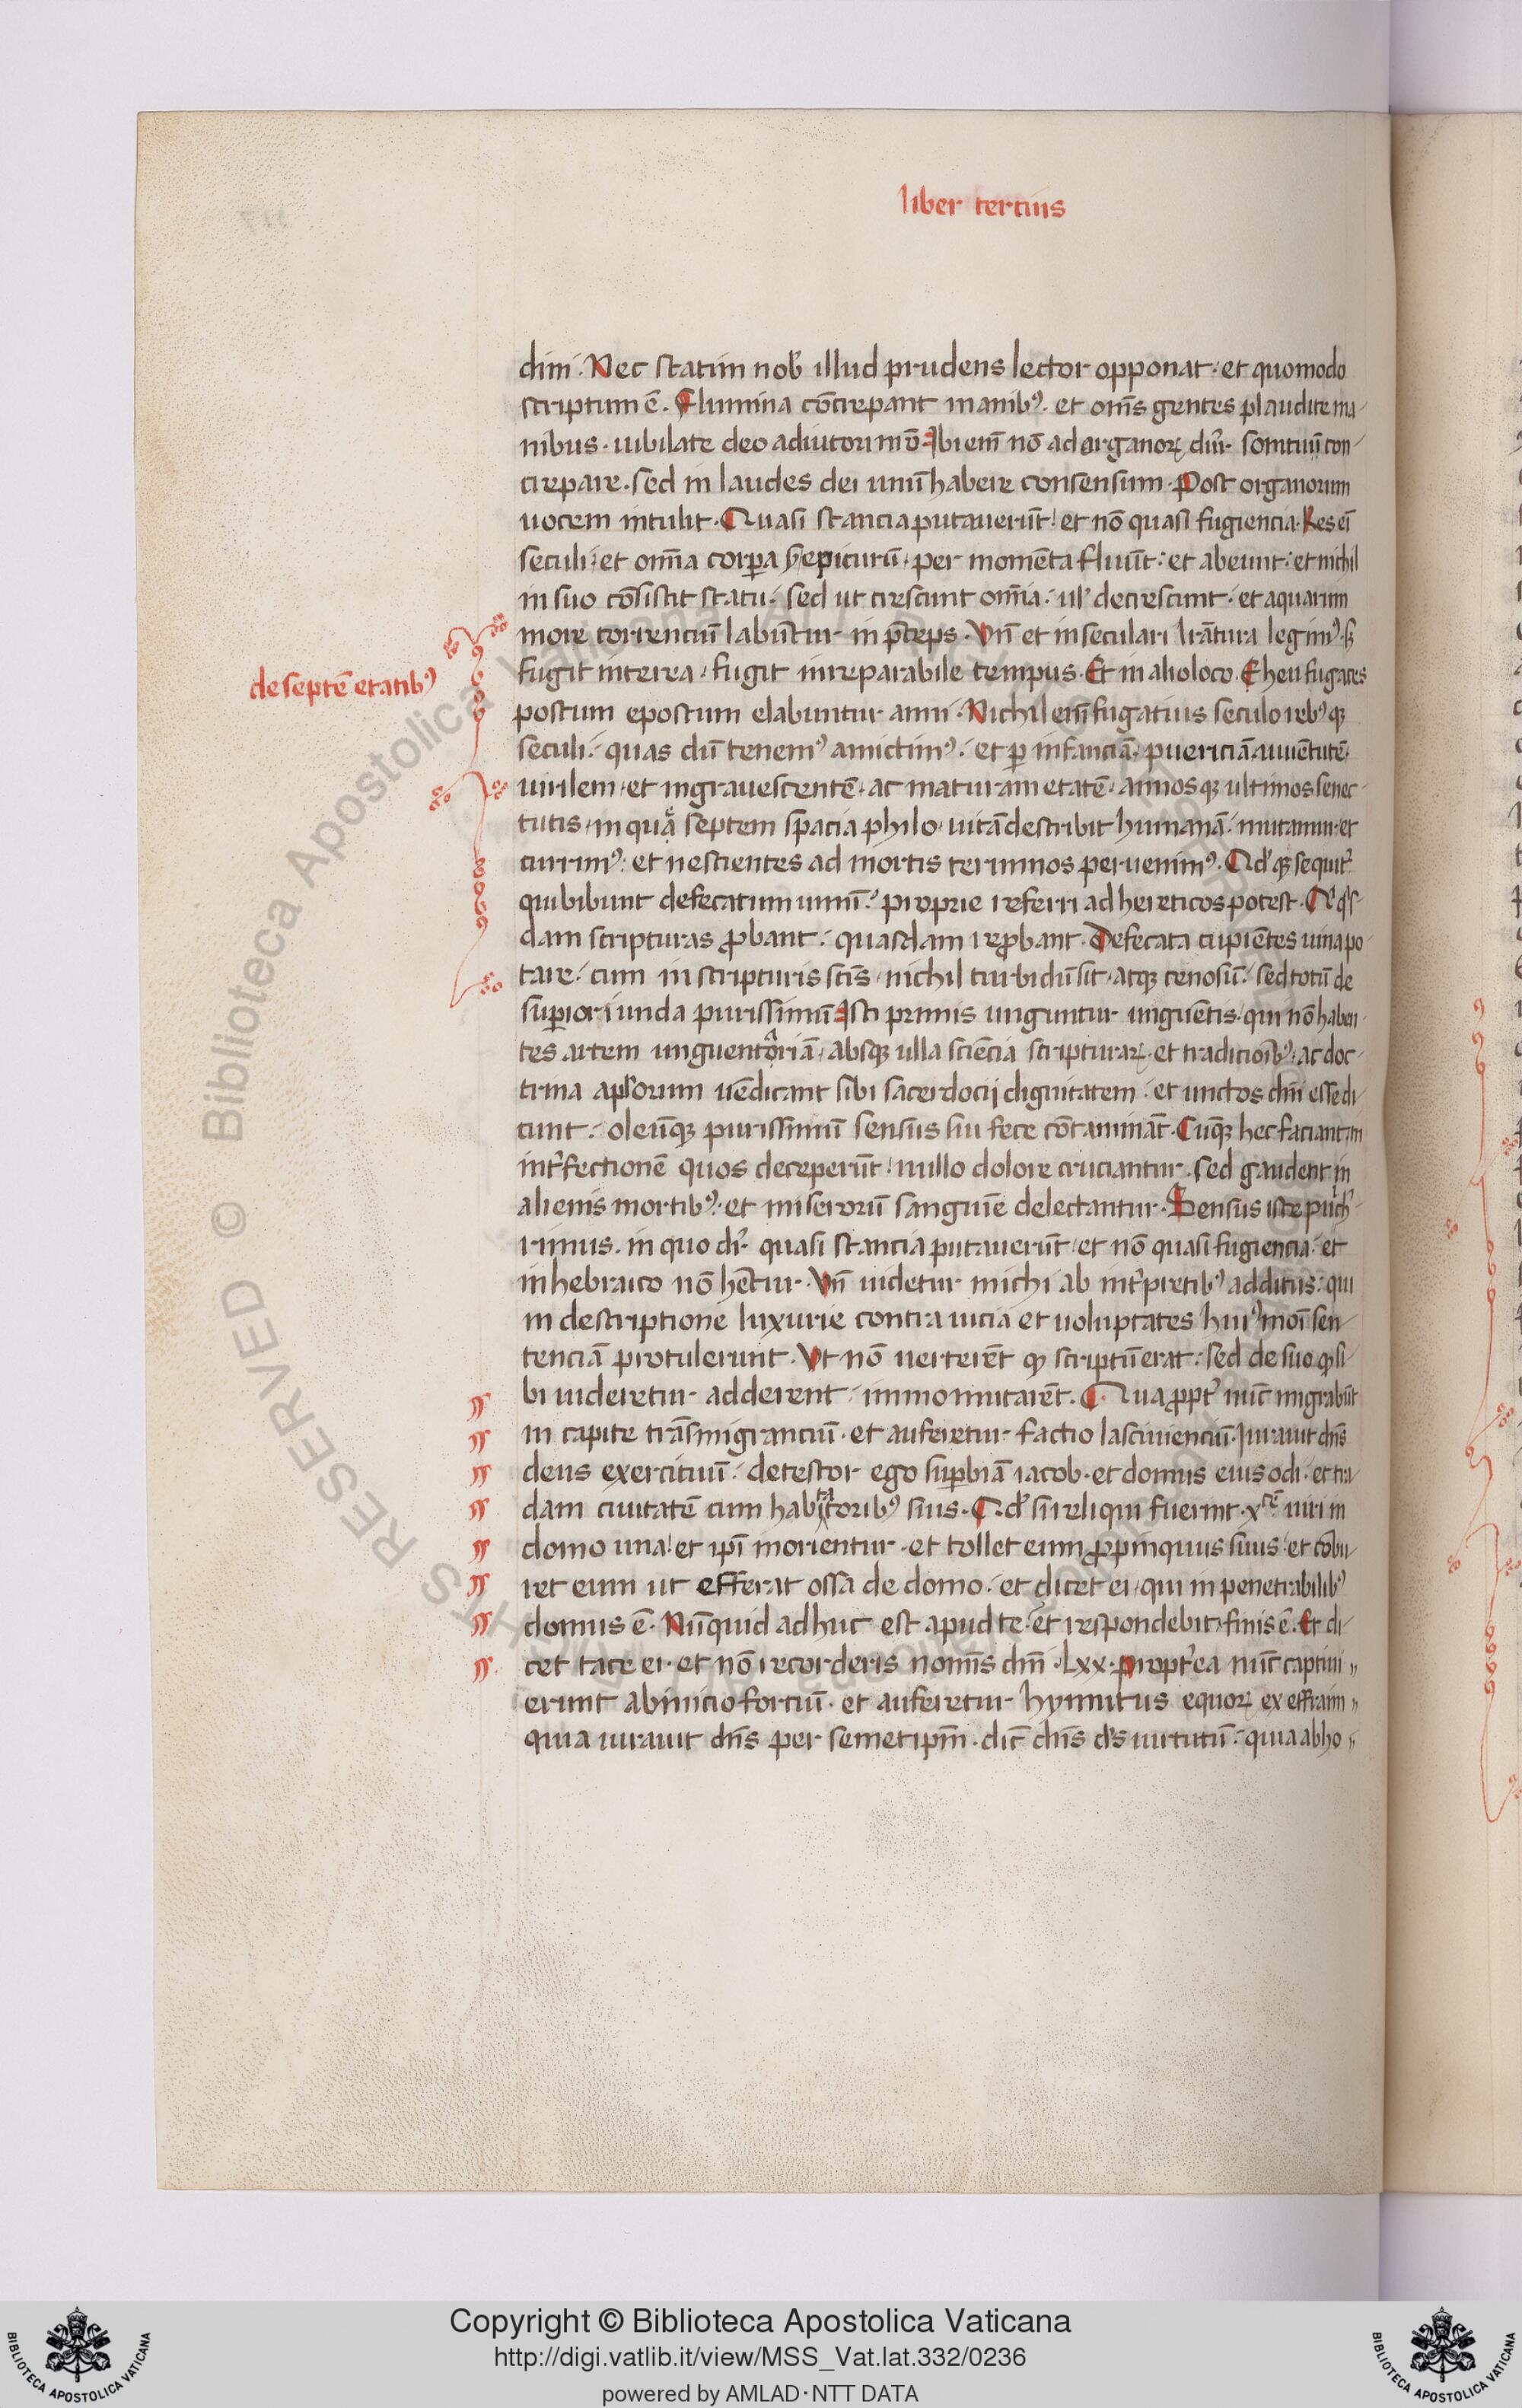 liber tercius
dini. Nec statim nob̄ illud prudens lector opponat. et quomodo
scriptum ē. Flumina cōcrepant manibꝰ. et om̄s gentes plaudite ma-
nibus. iubilate deo adiutori nr̄o. Ibi em̄ nō ad organoꝝ dr̄. sonituū con-
crepare. sed in laudes dei unū habere consensum. Post organorum
uocem intulit. Quasi stancia putauerūt! et nō quasi fugiencia. Res ei̅
seculi. et om̄a corpa ẜ epicurū. per momēta fluūt: et abeunt: et nichil
in suo cōsistit statu. sed ut crescunt om̄ia. ul̓ decrescunt. et aquarum
more torrenciū labūtur in p̄ceps. Vn̄ et in seculari lr̄atura legimꝰ.
de septē etatibꝰ
fugit interea. fugit inreparabile tempus. Et in alio loco. Eheu fugaces
postum epostum elabuntur anni. Nichil em̄ fugatius seculo rebꝰ qꝫ
seculi. quas dū tenemꝰ amictimꝰ. et ꝑ infanciā. puericiā. iuuētutē.
uirilem. et ingrauescentē. ac maturam etatē. annos qꝫ ultimos senec-
tutis. in quā septem spacia philo. uitā describit humanā. mutamur. et
currimꝰ. et nescientes ad mortis terminos peruenimꝰ. Qd̓ qꝫ sequit̓
qui bibunt defecatum uinū. proprie referri ad hereticos potest.
dam scripturas ꝓbant. quasdam reꝓbant. Defecata cupiētes uina po-
tare. cum in scripturis sc̄is. nichil turbidū sit. atqꝫ cenosū. sed totū de
superiori unda purissimū. Isti primis unguntur unguētis. qui nō haben-
tes artem unguentariā. absqꝫ ulla sciēcia scripturaꝝ. et tradicioībꝰ. ac doc-
trina aplorum uēdicant sibi sacerdocij dignitatem. et unctos dn̄i esse di-
cunt. oleūqꝫ purissimū sensus sui fece cōtamināt. Cūqꝫ hec faciant. in
int̓fectionē quos deceperūt! nullo dolore cruciantur. sed gaudent in
alienis mortibꝰ. et miserorū sanguīe delectantur. Sensus iste pulch̓-
rimus. in quo dr̄. quasi stancia putauerūt. et nō quasi fugiencia. et
in hebraico nō hētur. Vn̄ uidetur michi ab int̓pretibꝰ additus: qui
in descriptione luxurie contra uicia et uoluptates huiꝰmoi sen-
tenciā protulerunt. Vt nō uerterēt qꝫ scriptū erat: sed de suo
bi uideretur adderent. immo mutarēt. Qua ꝓpt̓ nūc migrabūt
in capite trāsmigranciū. et auferetur factio lasciuienciū. Iurauit dn̄s
deus exercituū. detestor ego supbiā iacob. et domus eius odi. et tra-
dam ciuitatē cum habitatoribꝰ suis. Qd̓ si reliqui fuerint. xcē uiri in
domo una! et ip̄i morientur. et tollet eum ꝓpinquus suus. et cōbu-
ret eum ut efferat ossa de domo. et dicet ei. qui in penetrabilibꝰ
domus ē. Nūquid adhuc est apud te. et respondebit. finis ē. Et di-
cet tace ei. et nō recorderis nomīs dn̄i. Lxx. propt̓ea nūc captiui
erunt ab inicio forciū. et auferetur hynnitus equoꝝ ex effraim
quia iurauit dn̄s per semetip̄m. dic̄ dn̄s d̓s uirtutū. quia abho
Copyright © Biblioteca Apostolica Vaticana
http://digi.vatlib.it/view/MSS_Vat.lat.332/0236
powered by AMLAD·NTT DATA